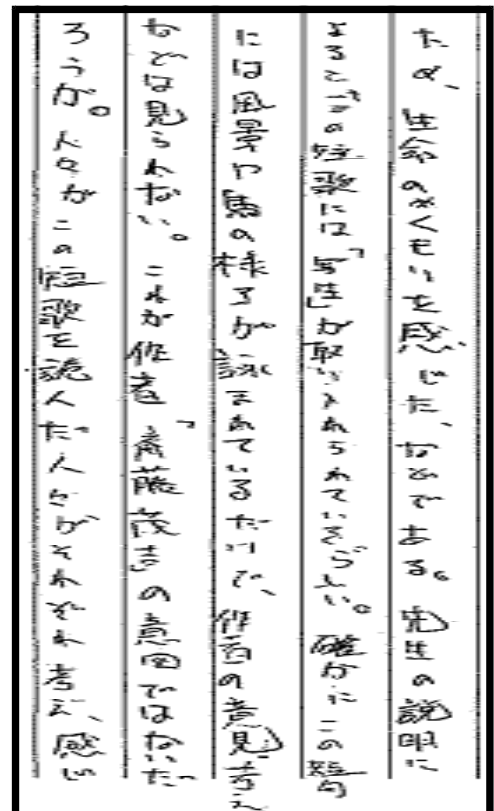 ただ、生命のぬくもりを感じた、などである。先生の説明に
よるとこの短歌には「写生」が取り入れられているらしい。確かにこの短句
には風景や馬の様子が詠まれているだけで、作者の意見、考え
などは見られない。これが作者、斎藤茂吉の意図ではないだ
ろうか。人々がこの短歌を読んだ人々がそれぞれ考え、感じ